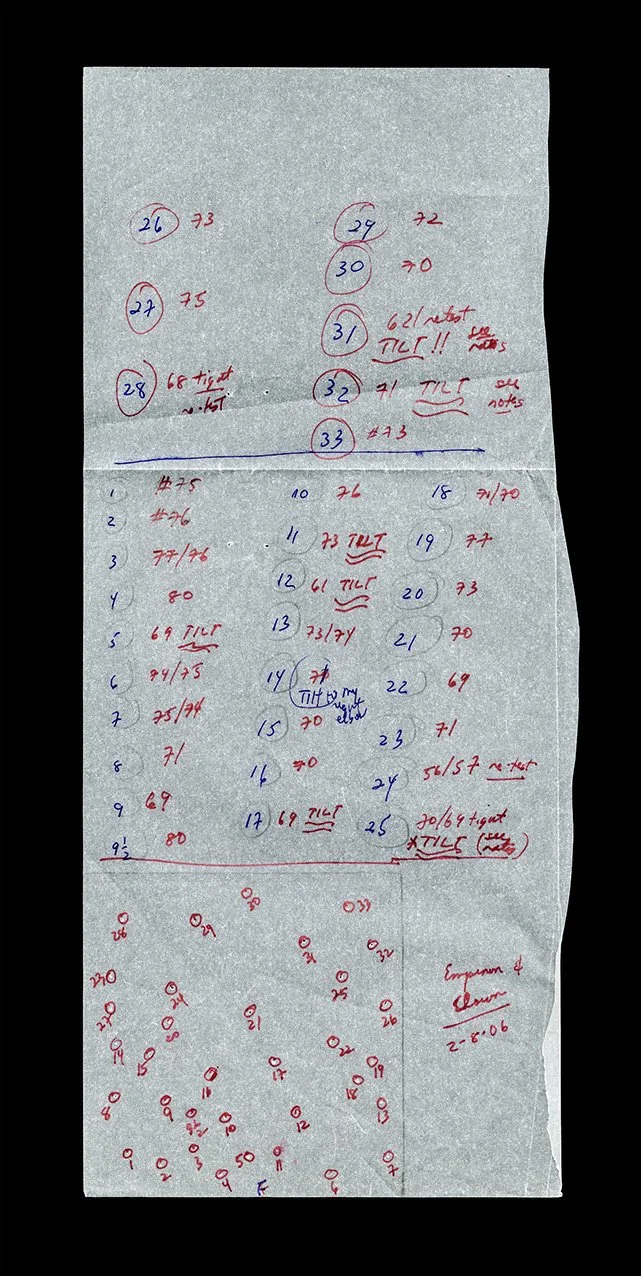 26 73
27 75
28 68 tight
re-test
29 72
30 70
31 62/retest
TILT!! see
notes
32 71 TILT see
notes
33 #73
1 #75
2 #76
3 77/76
4 80
5 69 TILT
6 74/75
7 75/74
8 71
9 69
9 1/2 80
10 76
11 73 TILT
12 61 TILT
13 73/74
14
TILT my
right
elbow
15 70
16 70
17 69 TILT
18 71/70
19 77
20 73
21 70
22 69
23 71
24 56/57 re-test
25 70/69 tight
*TILT (see
notes)
30
33
28
29
31
32
24
25
26
21
20
22
14
15
17
19
16
18
8
9
9 1/2
10
12
13
1
2
3
4
5
11
6
7
F
&
Clown
2-8-06